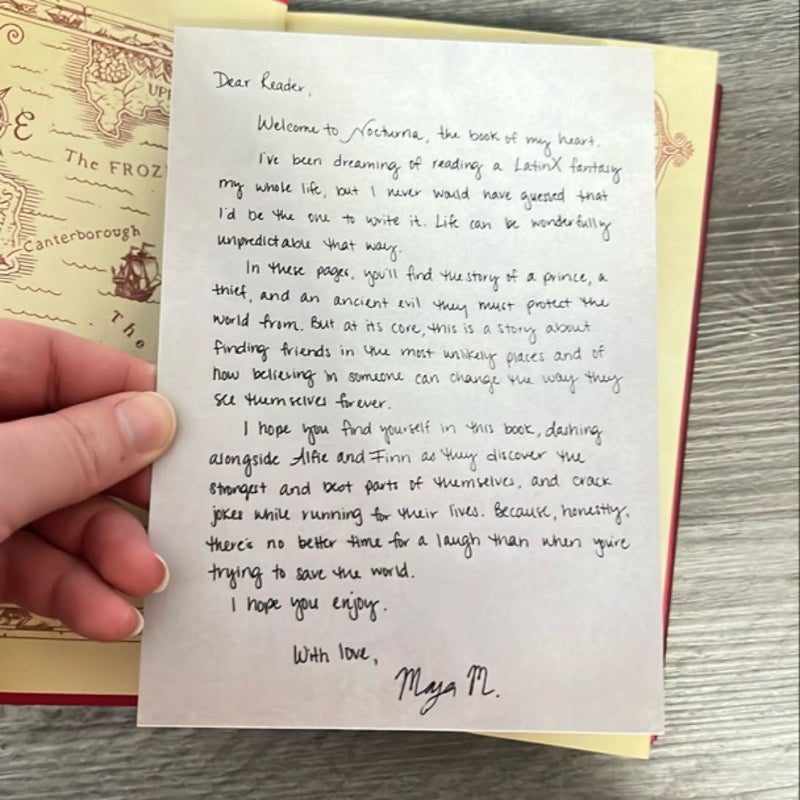 Dear Reader,
Welcome to Nocturna, the book of my heart.
I've been dreaming of reading a LatinX fantasy
my whole life, but I never would have guessed that
I'd be the one to write it. Life can be wonderfully
unpredictable that way.
In these pages, you'll find the story of a prince, a
thief, and an ancient evil they must protect the
world from. But at its core, this is a story about
finding friends in the most unlikely places and of
how believing in someone can change the way they
see themselves forever.
I hope you find yourself in this book, dashing
alongside Alfie and Finn as they discover the
strongest and best parts of themselves, and crack
jokes while running for their lives. Because, honestly,
there's no better time for a laugh than when you're
trying to save the world.
I hope you enjoy.
With love,
Maya M.
E
UPP
The FROZ
Canterborough
The